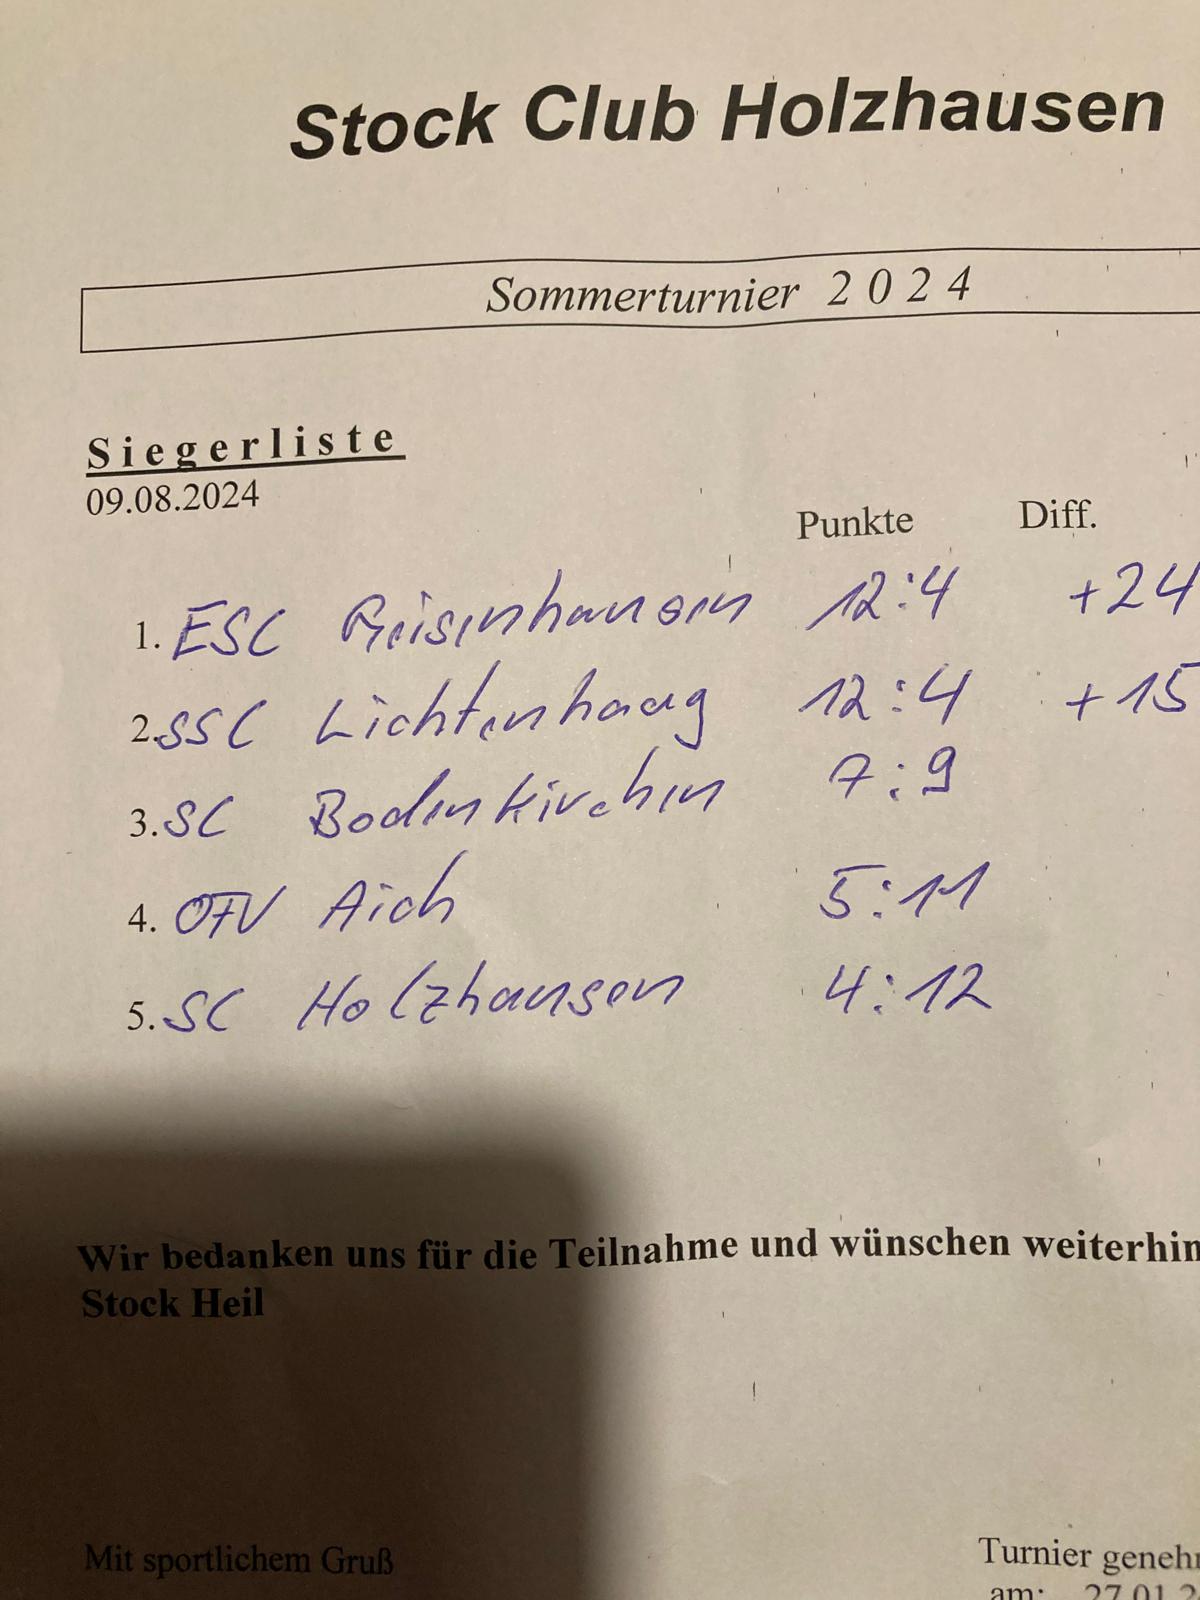 Stock Club Holzhausen
Sommerturnier 2024
Siegerliste
09.08.2024
Punkte Diff.
1. ESC Geisenhausen 12:4 +24
2. SSC Lichtenhaag 12:4 +15
3. SC Bodenkirchen 7:9
4. OTV Aich 5:11
5. SC Holzhausen 4:12
Wir bedanken uns für die Teilnahme und wünschen weiterhin
Stock Heil
Mit sportlichem Gruß
Turnier geneh
am: 27.01.2